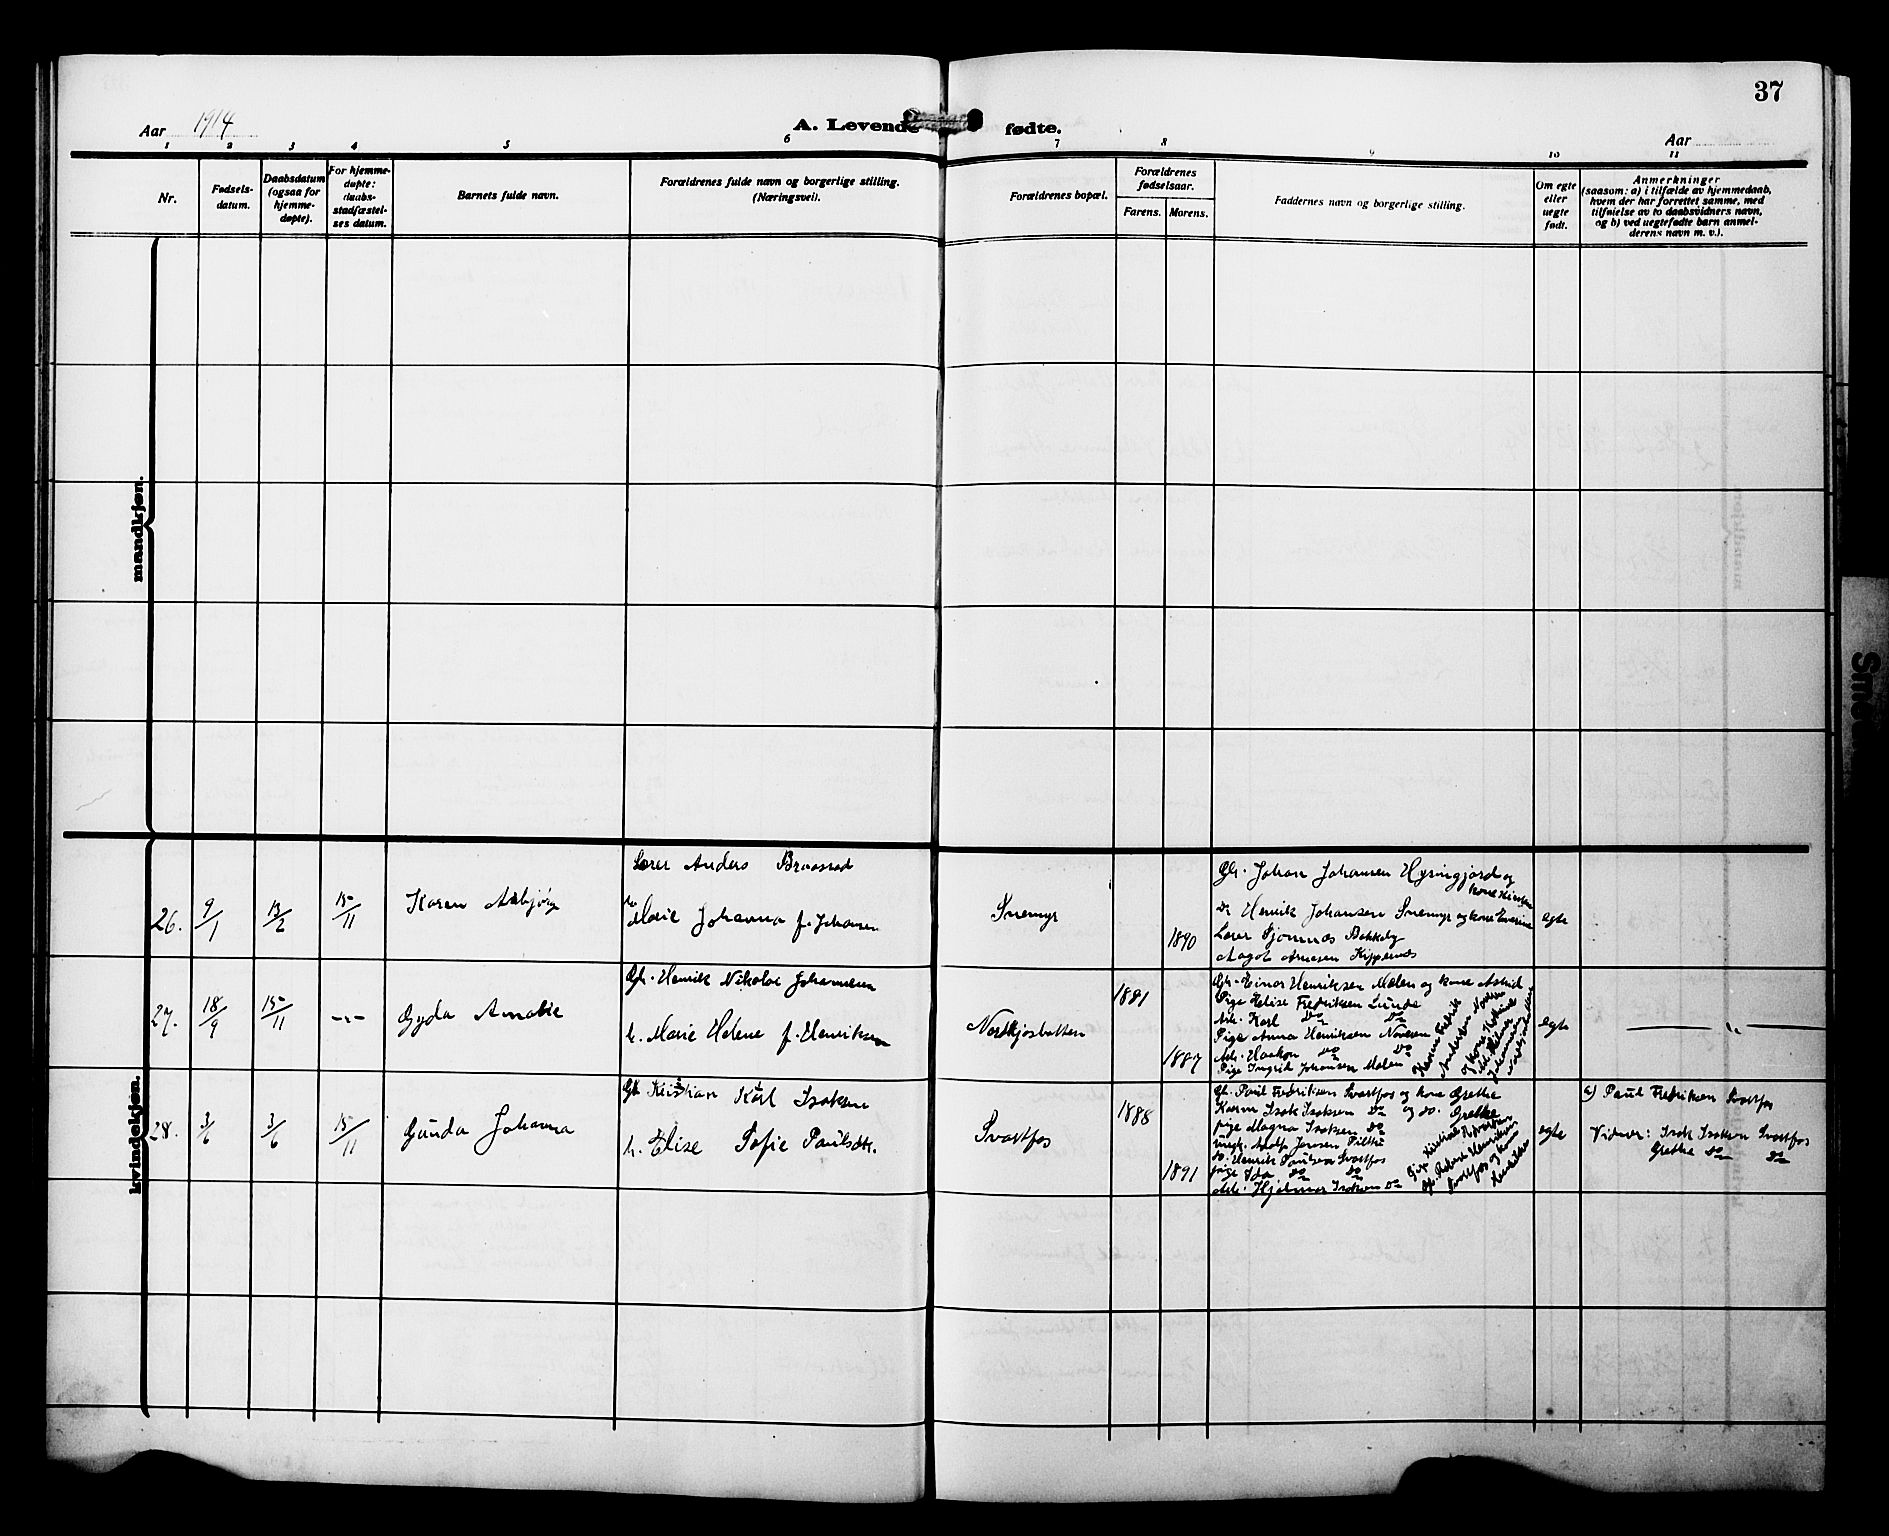 37
Aar 1914
A. Levende fødte.
Aar
1 2 3 4 5 6 7 8 9 10 11
Nr.
Fødsels-
datum.
Daabsdatum
(ogsaa for
hjemme-
døpte).
For hjemme-
døpte:
daabs-
stadfæstel-
ses datum.
Barnets fulde navn.
Forældrenes fulde navn og borgerlige stilling.
(Næringsvei).
Forældrenes bopæl.
Forældrenes
fødselsaar.
Farens. Morens.
Faddernes navn og borgerlige stilling.
Om egte
eller
uegte
født.
Anmerkninger
(saasom: a) i tilfælde av hjemmedaab,
hvem der har forrettet samme, med
tilføielse av to daabsvidners navn,
og b) ved uegtefødte barn anmel-
derens navn m. v.).
mandkjøn.
kvindekjøn.
26.
9/1
15/11
Karen Asbjørg
Lærer Anders
Marie Johanna f. Johansen
Snemyr
1890
Gbr. Johan Johansen Hysingjord og
kone
Do Henrik Johansen Snemyr og kone
Lærer
Aagot Arnesen
egte
27.
18/9
15/11
-"-
Gyda Amalie
Gbr. Henrik Nikolai Johannesen
h. Marie Helene f. Henriksen
Nordkjosbotten
1881
1887
Gbr. Einar Henriksen Mælen og kone Astrid
Pige Helise Fredriksen Lunde
Arb. Karl Do Do
Pige Anna Henriksen
Arb. Haakon Do Do
Pige Ingrid Johansen Mælen
egte
"
28.
3/6
3/6
15/11
Gunda Johanna
Gb. Kristian Karl Isaksen
h. Elise Sofie Paulsdtr.
Svartfos
1888
1891
Gb. Paul Fredriksen Svartfos og kone Grethe
Karm Isak Isaksen Do og do. Grethe
pige Magna Isaksen Do
ungk. Adolf Jensen
do. Henrik Paulsen Svartfos
pige Ida Do Do
Arb. Hjalmar Isaksen Do
Svartfos og kone
egte
a) Paul Fredriksen Svartfos
Vidner: Isak Isaksen Svartfos
Grethe Do Do